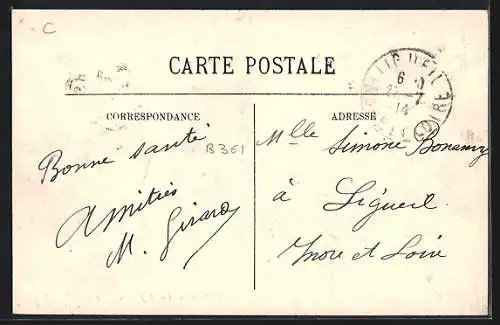 C
CARTE POSTALE
CORRESPONDANCE
ADRESSE
Bonne santé
B351
Amitiés
M. Girard
Mlle Simone Bonamy
à Ligueil
Indre et Loire
LIGUEIL
6
22-7
14
LOIRE